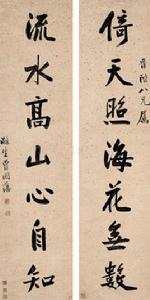 倚天照海花無數
流水高山心自知
曾國藩